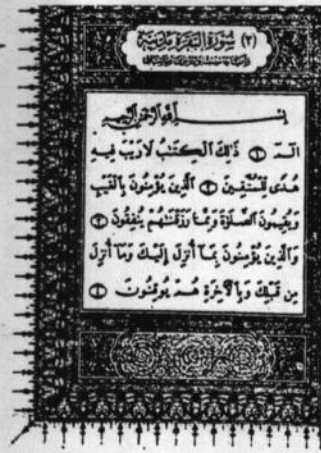 (٢) سُورَةُ الْبَقَرَةِ مَدَنِيَّة
بِسْمِ اللَّهِ الرَّحْمَٰنِ الرَّحِيمِ
الٓمٓ ۝ ذَٰلِكَ الْكِتَٰبُ لَا رَيْبَ فِيهِ
هُدًى لِّلْمُتَّقِينَ ۝ الَّذِينَ يُؤْمِنُونَ بِالْغَيْبِ
وَيُقِيمُونَ الصَّلَوٰةَ وَمِمَّا رَزَقْنَٰهُمْ يُنفِقُونَ ۝
وَالَّذِينَ يُؤْمِنُونَ بِمَآ أُنزِلَ إِلَيْكَ وَمَآ أُنزِلَ
مِن قَبْلِكَ وَبِالْأَخِرَةِ هُمْ يُوقِنُونَ ۝